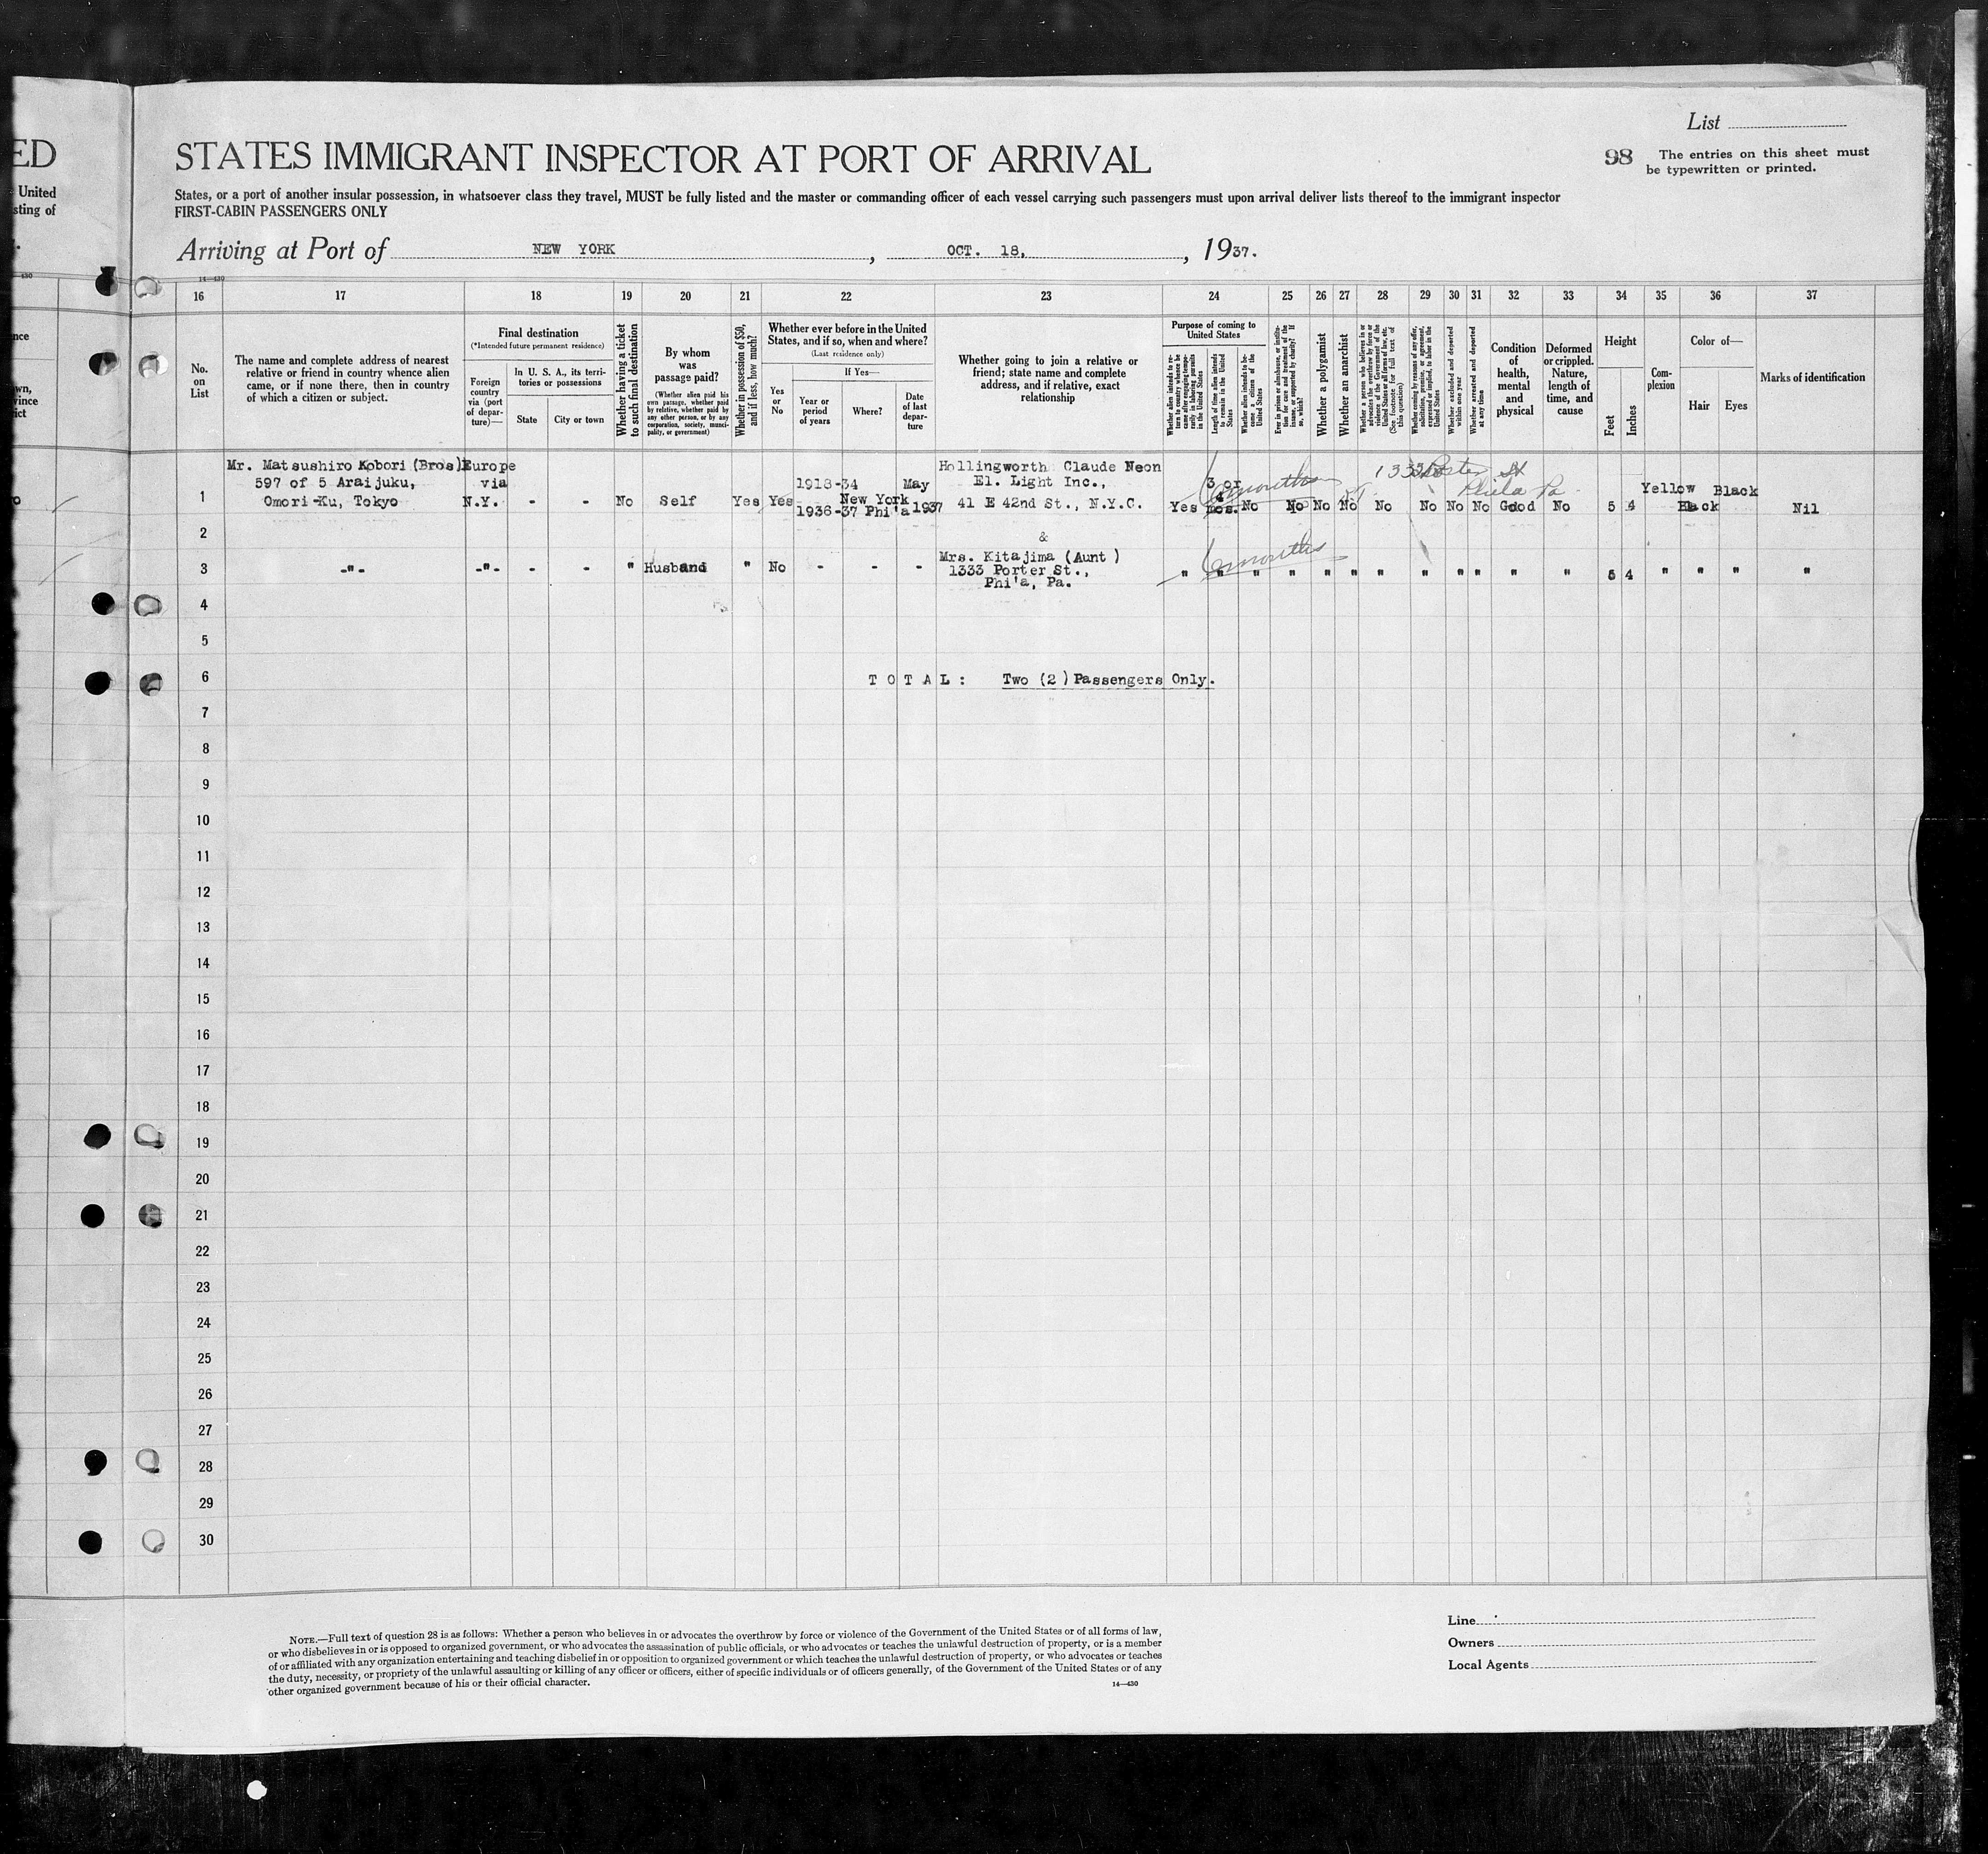 ED
United
sting of
List
98 The entries on this sheet must
be typewritten or printed.
STATES IMMIGRANT INSPECTOR AT PORT OF ARRIVAL
States, or a port of another insular possession, in whatsoever class they travel, MUST be fully listed and the master or commanding officer of each vessel carrying such passengers must upon arrival deliver lists thereof to the immigrant inspector
FIRST-CABIN PASSENGERS ONLY
Arriving at Port of NEW YORK, OCT. 18, 1937.
14—430
16 17 18 19 20 21 22 23 24 25 26 27 28 29 30 31 32 33 34 35 36 37
No.
on
List
The name and complete address of nearest
relative or friend in country whence alien
came, or if none there, then in country
of which a citizen or subject.
Final destination
(*Intended future permanent residence)
Foreign
country
via (port
of depar-
ture)—
In U. S. A., its terri-
tories or possessions
State
City or town
Whether having a ticket
to such final destination
By whom
was
passage paid?
(Whether alien paid his
own passage, whether paid
by relative, whether paid by
any other person, or by any
corporation, society, munci-
pality, or government)
Whether in possession of $50,
and if less, how much?
Whether ever before in the United
States, and if so, when and where?
(Last residence only)
Yes
or
No
If Yes—
Year or
period
of years
Where?
Date
of last
depar-
ture
Whether going to join a relative or
friend; state name and complete
address, and if relative, exact
relationship
Purpose of coming to
United States
Whether alien intends to re-
turn to country whence he
came after engaging tempo-
rarily in laboring pursuits
in the United States
Length of time alien intends
to remain in the United
States
Whether alien intends to be-
come a citizen of the
United States
Ever in prison or almshouse, or institu-
tion for care and treatment of the
insane, or supported by charity? If
so, which?
Whether a polygamist
Whether an anarchist
Whether a person who believes in or
advocates the overthrow by force or
violence of the Government of the
United States or all forms of law, etc.
(See footnote for full text of
this question)
Whether coming by reasons of any offer,
solicitation, promise, or agreement,
expressed or implied, to labor in the
United States
Whether excluded and deported
within one year
Whether arrested and deported
at any time
Condition
of
health,
mental
and
physical
Deformed
or crippled.
Nature,
length of
time, and
cause
Height
Feet
Inches
Com-
plexion
Color of—
Hair
Eyes
Marks of identification
Mr. Matsushiro Kobori (Bros) Europe Hollingworth Claude Neon 1333 Porter St
597 of 5 Araijuku, via 1918-34 May El. Light Inc., 3 or 6 months Phila Pa
1 Omori-Ku, Tokyo N.Y. - - No Self Yes Yes New York 41 E 42nd St., N.Y.C. Yes mos. No No No No No No No No Good No 5 4 Yellow Black Black Nil
1936-37 Phi'a 1937
2 &
Mrs. Kitajima (Aunt) 6 months
3 -"- -"- - - " Husband " No - - - 1333 Porter St., " " " " " " " " " " " " 5 4 " " " "
Phi'a, Pa.
4
5
6 TOTAL: Two (2) Passengers Only.
7
8
9
10
11
12
13
14
15
16
17
18
19
20
21
22
23
24
25
26
27
28
29
30
NOTE.—Full text of question 28 is as follows: Whether a person who believes in or advocates the overthrow by force or violence of the Government of the United States or of all forms of law,
or who disbelieves in or is opposed to organized government, or who advocates the assassination of public officials, or who advocates or teaches the unlawful destruction of property, or is a member
of or affiliated with any organization entertaining and teaching disbelief in or opposition to organized government or which teaches the unlawful destruction of property, or who advocates or teaches
the duty, necessity, or propriety of the unlawful assaulting or killing of any officer or officers, either of specific individuals or of officers generally, of the Government of the United States or of any
other organized government because of his or their official character.
14—430
Line
Owners
Local Agents